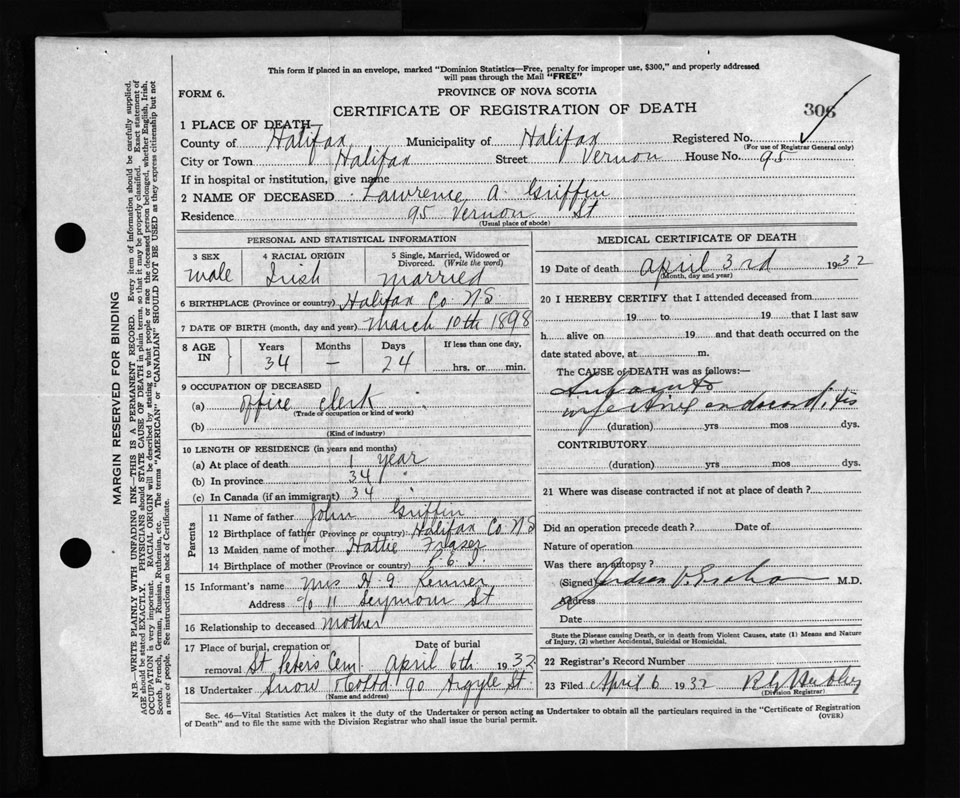 This form if placed in an envelope, marked "Dominion Statistics—Free, penalty for improper use, $300," and properly addressed
will pass through the Mail "FREE"
FORM 6.
PROVINCE OF NOVA SCOTIA
CERTIFICATE OF REGISTRATION OF DEATH
306
1 PLACE OF DEATH
County of Halifax Municipality of Halifax Registered No.
(For use of Registrar General only)
City or Town Halifax Street Vernon House No. 95
If in hospital or institution, give name
2 NAME OF DECEASED Lawrence A. Griffin
Residence 95 Vernon St
(Usual place of abode)
PERSONAL AND STATISTICAL INFORMATION
3 SEX 4 RACIAL ORIGIN 5 Single, Married, Widowed or
Divorced. (Write the word)
male Irish married
6 BIRTHPLACE (Province or country) Halifax Co N.S
7 DATE OF BIRTH (month, day and year) March 10th 1898
8 AGE IN Years Months Days If less than one day,
34 — 24 hrs. or min.
9 OCCUPATION OF DECEASED
(a) office clerk
(Trade or occupation or kind of work)
(b)
(Kind of industry)
10 LENGTH OF RESIDENCE (in years and months)
(a) At place of death 1 year
(b) In province 34 "
(c) In Canada (if an immigrant) 34 "
Parents
11 Name of father John Griffin
12 Birthplace of father (Province or country) Halifax Co N S
13 Maiden name of mother Hattie Fraser
14 Birthplace of mother (Province or country) P.E.I.
15 Informant's name Mrs H. G.
Address c/o 11 Seymour St
16 Relationship to deceased mother
17 Place of burial, cremation or Date of burial
removal St Peters Cem. April 6th 1932
18 Undertaker Snow & Co Ltd 90 Argyle St.
(Name and address)
MEDICAL CERTIFICATE OF DEATH
19 Date of death April 3rd 1932
(Month, day and year)
20 I HEREBY CERTIFY that I attended deceased from
19 to 19 that I last saw
h alive on 19 and that death occurred on the
date stated above, at m.
The CAUSE of DEATH was as follows:—
Subacute
infective endocarditis
(duration) yrs mos dys.
CONTRIBUTORY
(duration) yrs mos dys.
21 Where was disease contracted if not at place of death?
Did an operation precede death? Date of
Nature of operation
Was there an autopsy?
(Signed) Judson V. Graham M.D.
Address
Date
State the Disease causing Death, or in death from Violent Causes, state (1) Means and Nature
of Injury, (2) whether Accidental, Suicidal or Homicidal.
22 Registrar's Record Number
23 Filed April 6 1932
(Division Registrar)
Sec. 46—Vital Statistics Act makes it the duty of the Undertaker or person acting as Undertaker to obtain all the particulars required in the "Certificate of Registration
of Death" and to file the same with the Division Registrar who shall issue the burial permit.
(OVER)
MARGIN RESERVED FOR BINDING
N.B.—WRITE PLAINLY WITH UNFADING INK—THIS IS A PERMANENT RECORD. Every item of information should be carefully supplied.
AGE should be stated EXACTLY. PHYSICIANS should STATE CAUSE OF DEATH in plain terms, so that it may be properly classified. Exact statement of
OCCUPATION is very important. RACIAL ORIGIN will be described by stating to what people or race the deceased person belonged, whether English, Irish,
Scotch, French, German, Russian, Ruthenian, etc. The terms "AMERICAN" or "CANADIAN" SHOULD NOT BE USED as they express citizenship but not
a race or people. See instructions on back of Certificate.